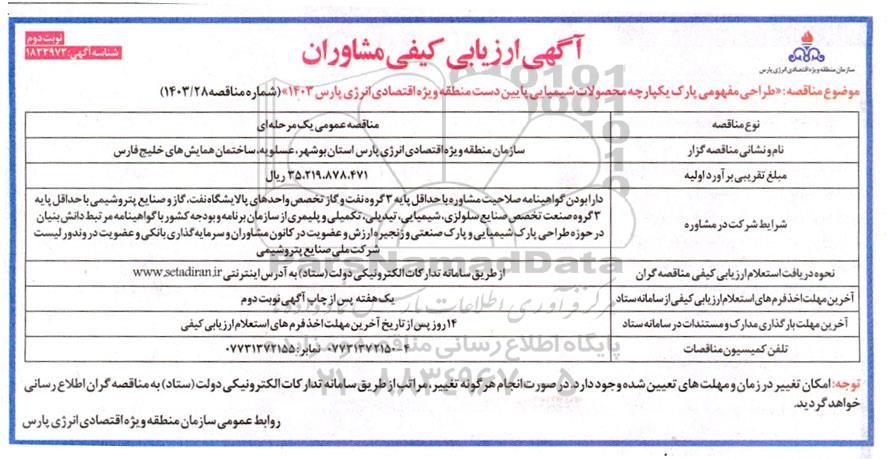 نوبت دوم
شناسه آگهی: ۱۸۳۳۹۷۳
آگهی ارزیابی کیفی مشاوران
سازمان منطقه ویژه اقتصادی انرژی پارس
موضوع مناقصه: «طراحی مفهومی پارک یکپارچه محصولات شیمیایی پایین دست منطقه ویژه اقتصادی انرژی پارس ۱۴۰۳» (شماره مناقصه ۱۴۰۳/۲۸)
نوع مناقصه مناقصه عمومی یک مرحله ای
نام و نشانی مناقصه گزار سازمان منطقه ویژه اقتصادی انرژی پارس استان بوشهر، عسلویه، ساختمان همایش های خلیج فارس
مبلغ تقریبی برآورد اولیه ۳۵.۲۱۹.۸۷۸.۴۷۱ ریال
شرایط شرکت در مشاوره دارا بودن گواهینامه صلاحیت مشاوره با حداقل پایه ۳ گروه نفت و گاز تخصص واحدهای پالایشگاه نفت، گاز و صنایع پتروشیمی با حداقل پایه
۳ گروه صنعت تخصص صنایع سلولزی، شیمیایی، تبدیلی، تکمیلی و پلیمری از سازمان برنامه و بودجه کشور با گواهینامه مرتبط دانش بنیان
در حوزه طراحی پارک شیمیایی و پارک صنعتی و زنجیره ارزش و عضویت در کانون مشاوران و سرمایه گذاری بانکی و عضویت در وندور لیست
شرکت ملی صنایع پتروشیمی
نحوه دریافت استعلام ارزیابی کیفی مناقصه گران از طریق سامانه تدارکات الکترونیکی دولت (ستاد) به آدرس اینترنتی www.setadiran.ir
آخرین مهلت اخذ فرم های استعلام ارزیابی کیفی از سامانه ستاد یک هفته پس از چاپ آگهی نوبت دوم
آخرین مهلت بارگذاری مدارک و مستندات در سامانه ستاد ۱۴ روز پس از تاریخ آخرین مهلت اخذ فرم های استعلام ارزیابی کیفی
تلفن کمیسیون مناقصات ۰۷۷۳۱۳۷۲۱۵۰-۴ نمابر: ۰۷۷۳۱۳۷۲۱۵۵
توجه: امکان تغییر در زمان و مهلت های تعیین شده وجود دارد. در صورت انجام هر گونه تغییر، مراتب از طریق سامانه تدارکات الکترونیکی دولت (ستاد) به مناقصه گران اطلاع رسانی
خواهد گردید.
روابط عمومی سازمان منطقه ویژه اقتصادی انرژی پارس
ParsNamadData
پایگاه اطلاع رسانی مناقصه و مزایده